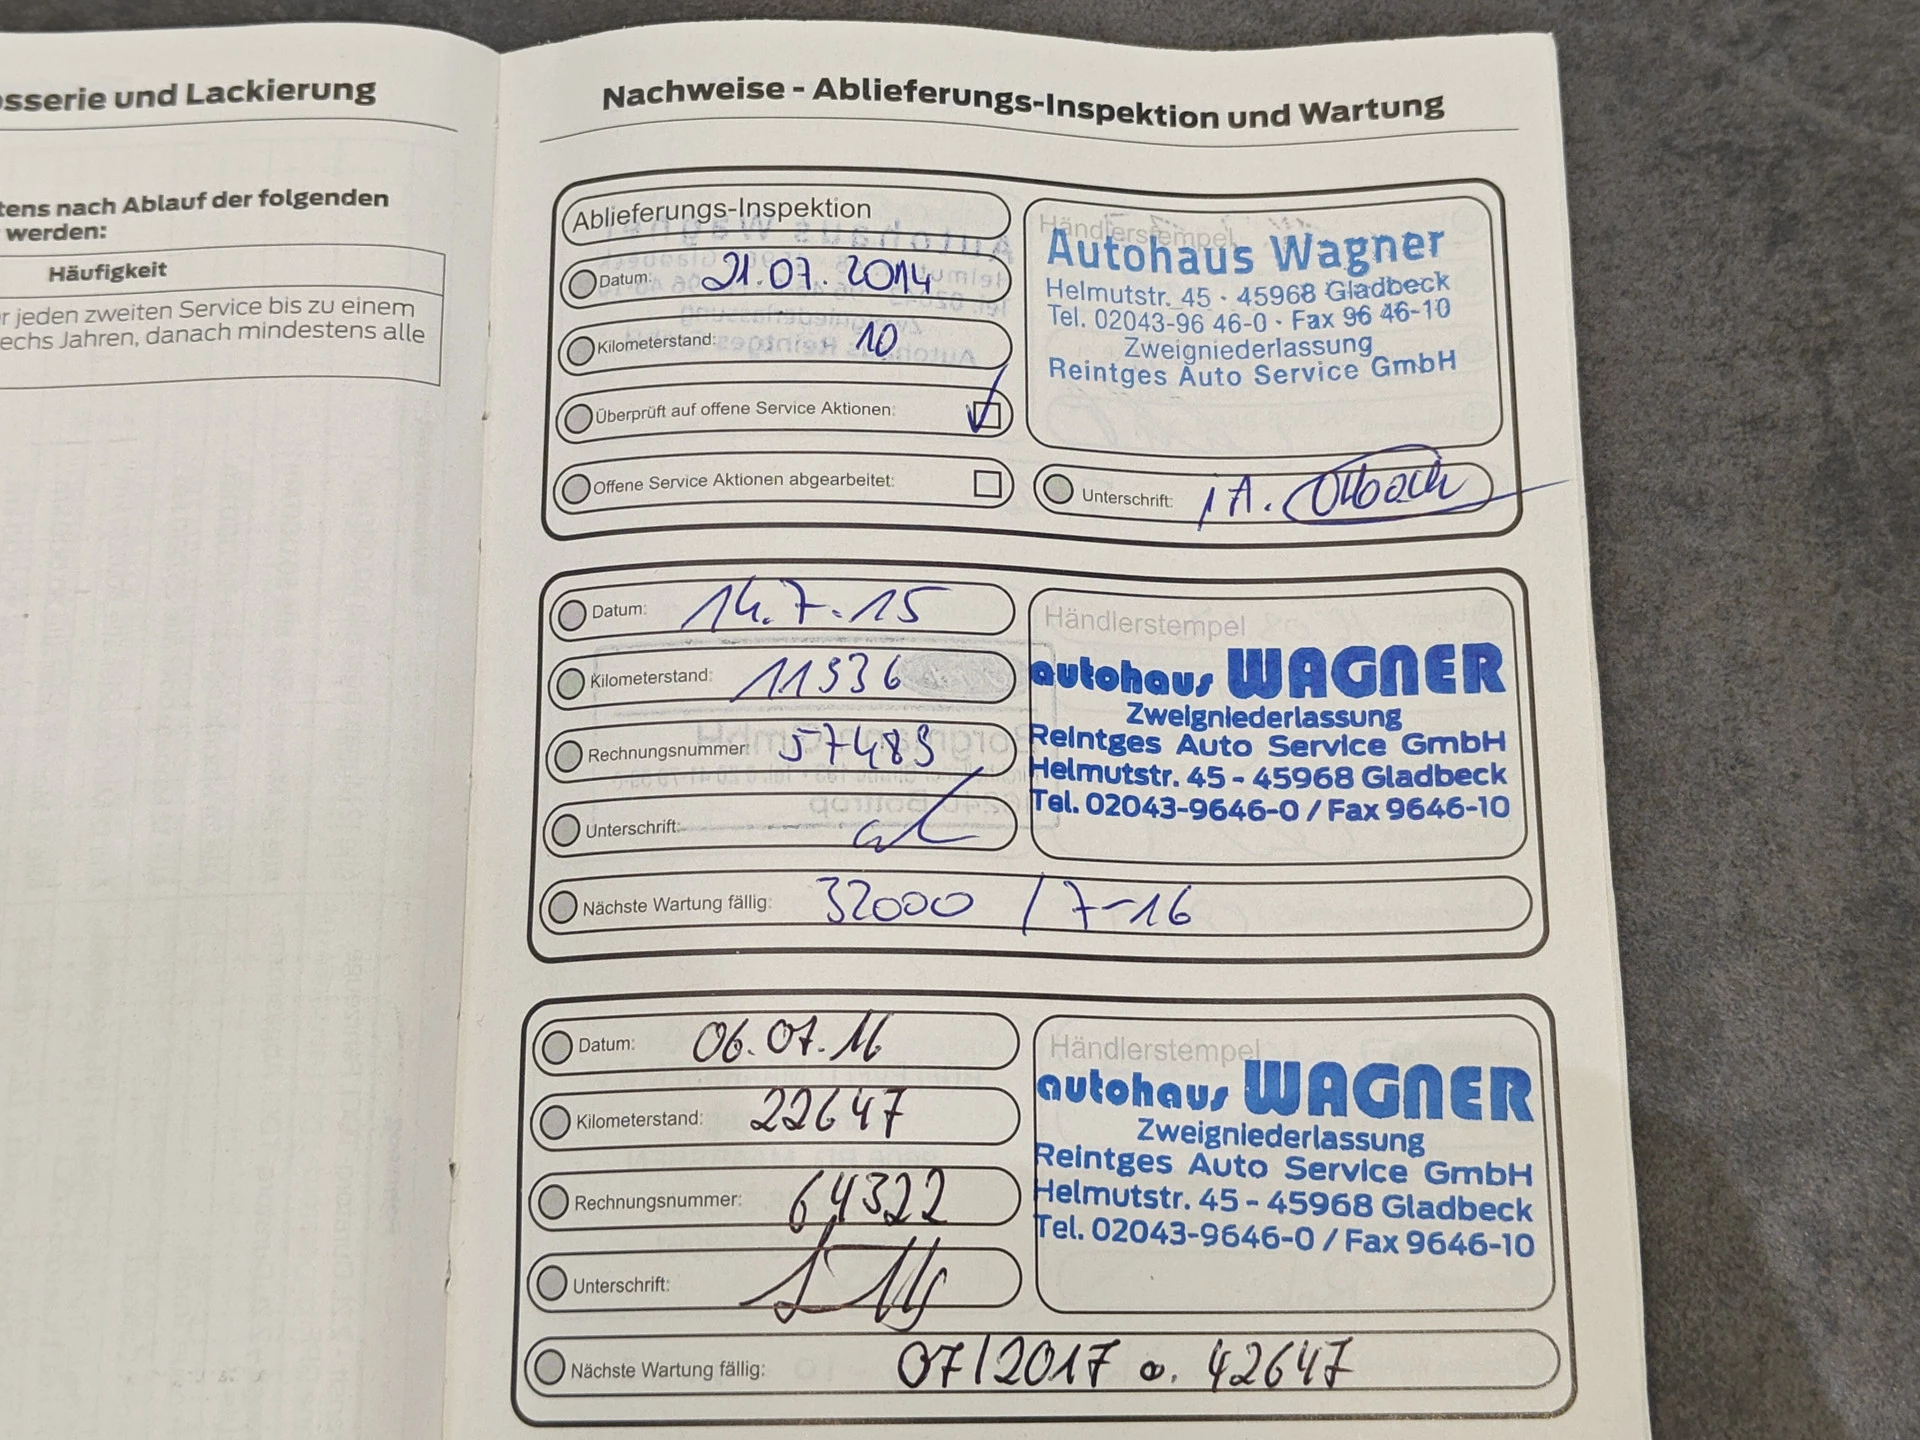 sserie und Lackierung
tens nach Ablauf der folgenden
werden:
Häufigkeit
r jeden zweiten Service bis zu einem
echs Jahren, danach mindestens alle
Nachweise - Ablieferungs-Inspektion und Wartung
Ablieferungs-Inspektion
Datum: 21.07.2014
Kilometerstand: 10
Überprüft auf offene Service Aktionen:
Offene Service Aktionen abgearbeitet:
Händlerstempel
Autohaus Wagner
Helmutstr. 45 · 45968 Gladbeck
Tel. 02043-96 46-0 · Fax 96 46-10
Zweigniederlassung
Reintges Auto Service GmbH
Unterschrift: i.A.
Datum: 14.7.15
Kilometerstand: 11336
Rechnungsnummer: 57483
Unterschrift:
Händlerstempel
autohaus WAGNER
Zweigniederlassung
Reintges Auto Service GmbH
Helmutstr. 45 - 45968 Gladbeck
Tel. 02043-9646-0 / Fax 9646-10
Nächste Wartung fällig: 32000 / 7-16
Datum: 06.07.16
Kilometerstand: 22647
Rechnungsnummer: 64322
Unterschrift:
Händlerstempel
autohaus WAGNER
Zweigniederlassung
Reintges Auto Service GmbH
Helmutstr. 45 - 45968 Gladbeck
Tel. 02043-9646-0 / Fax 9646-10
Nächste Wartung fällig: 07/2017 o. 42647